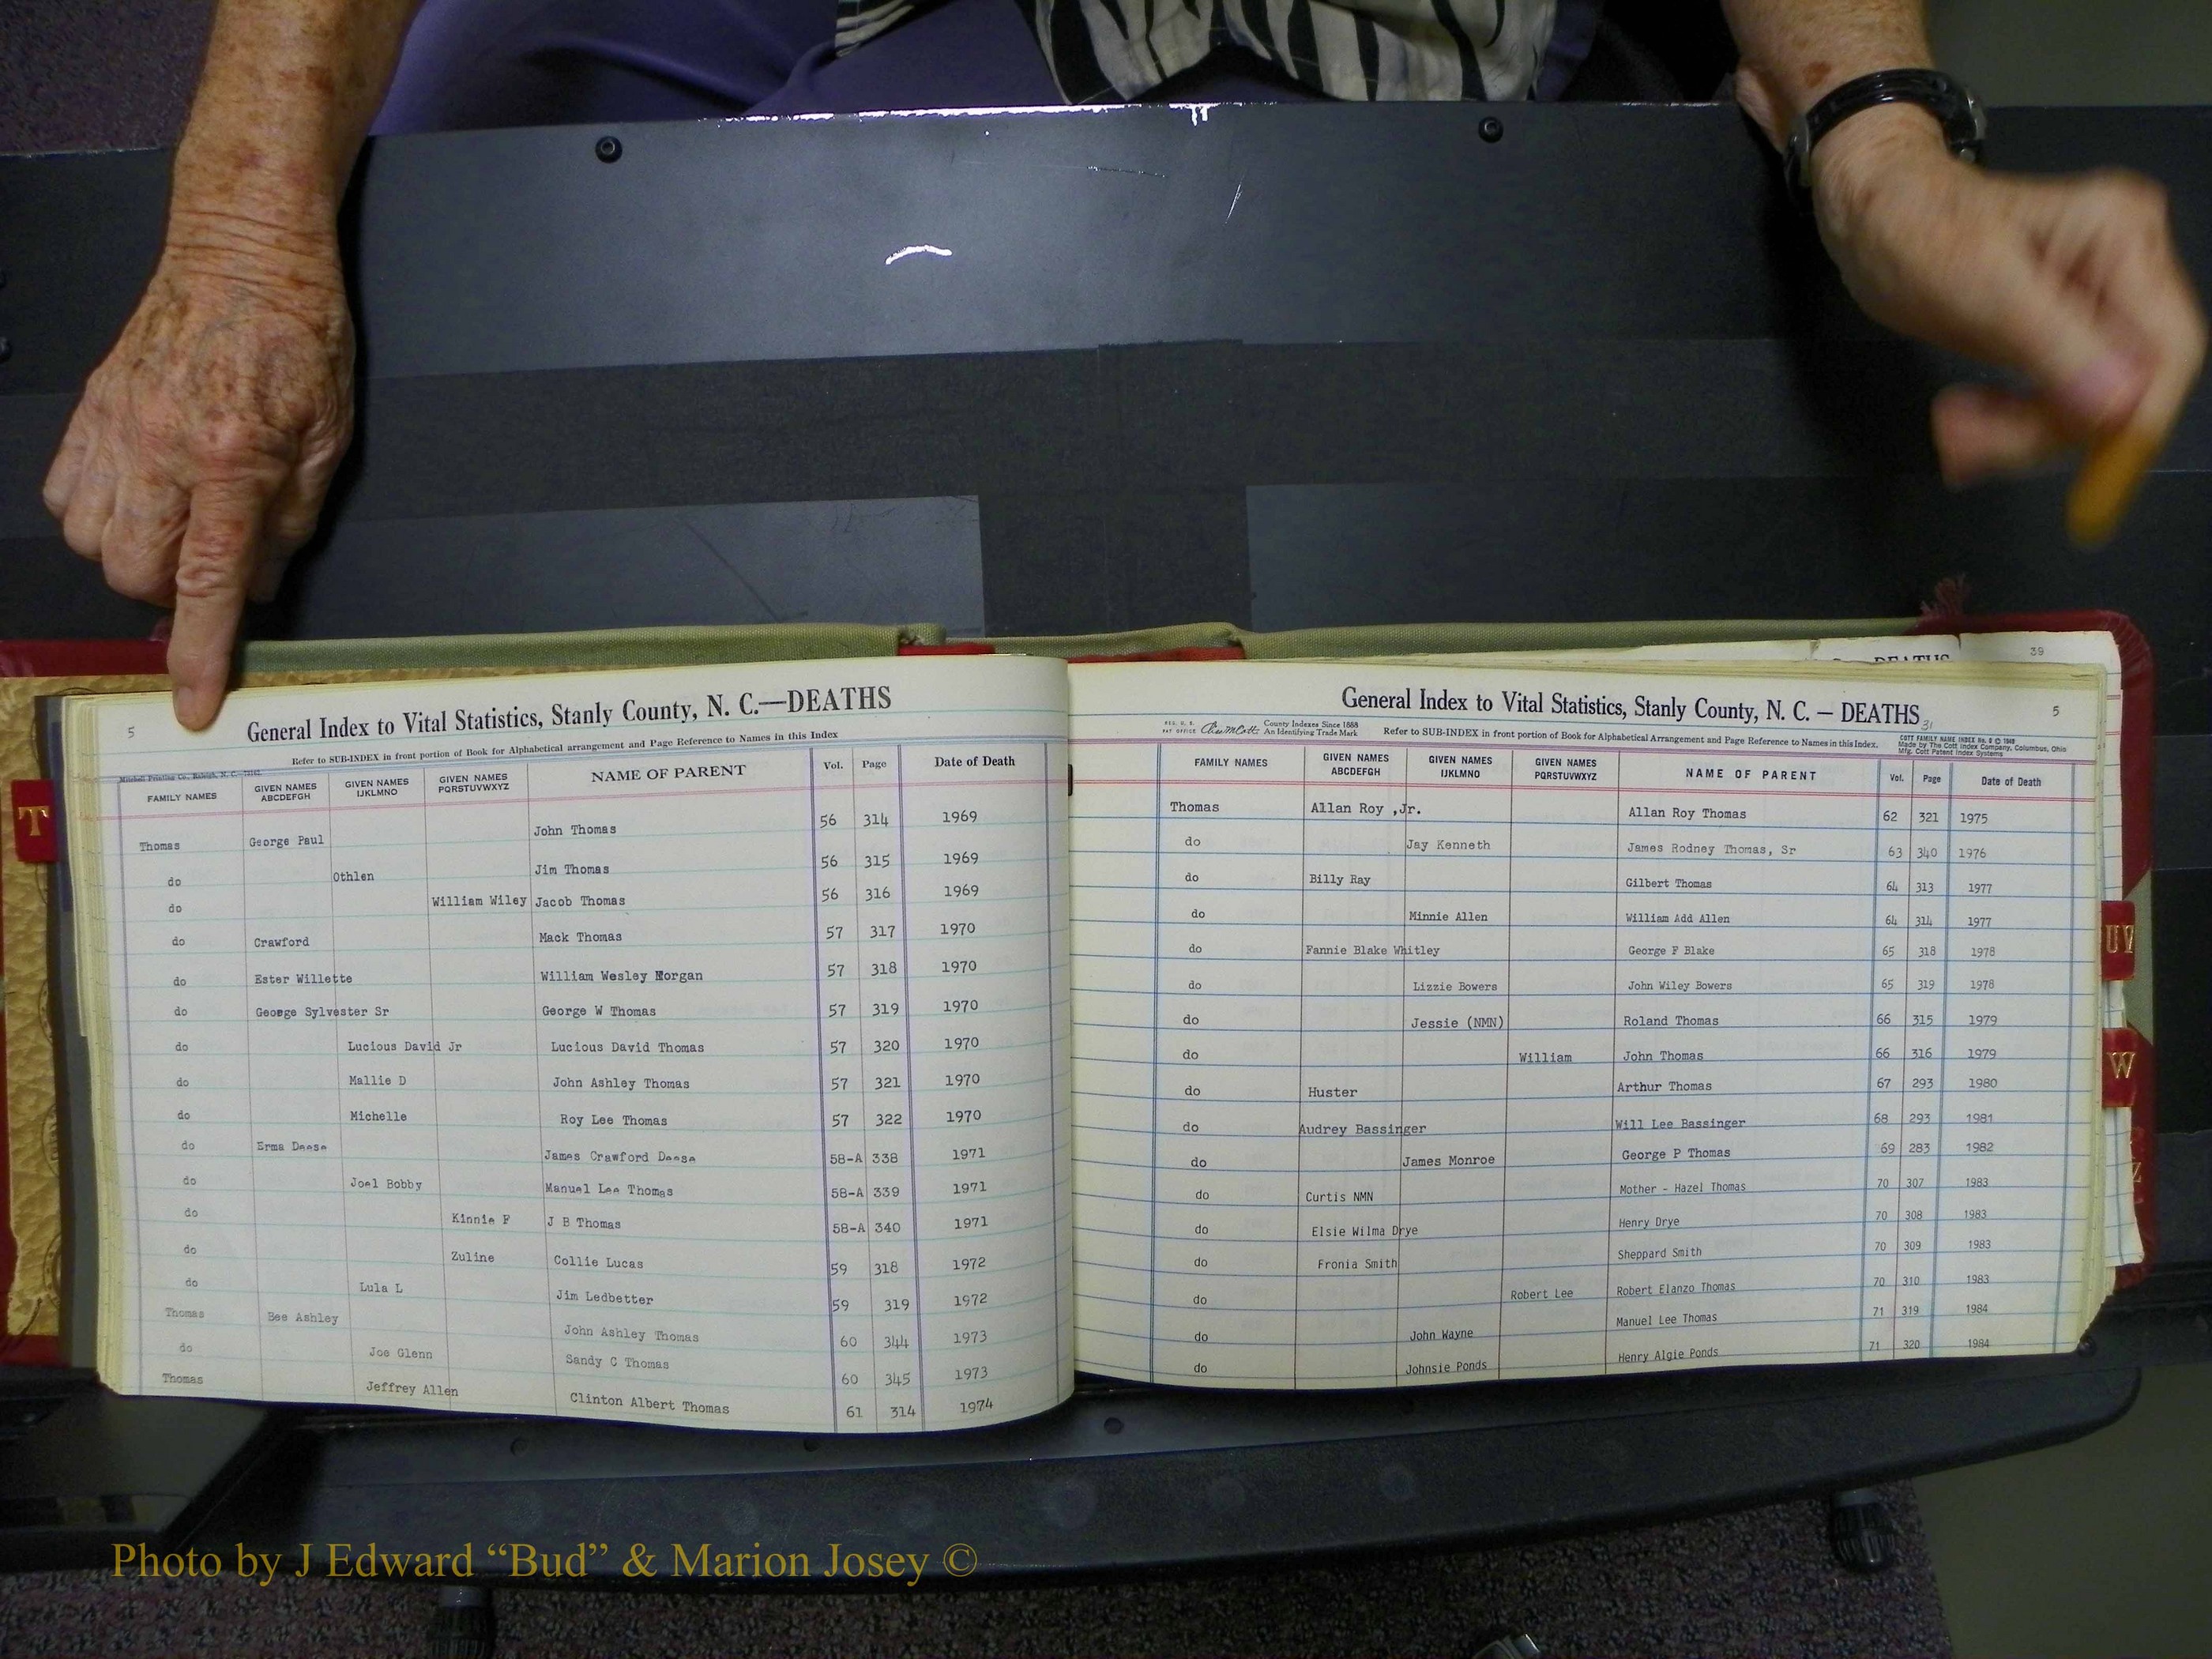 39
DEATHS
5
General Index to Vital Statistics, Stanly County, N. C.—DEATHS
Refer to SUB-INDEX in front portion of Book for Alphabetical arrangement and Page Reference to Names in this Index
Mitchell Printing Co., Raleigh, N. C.
FAMILY NAMES GIVEN NAMES ABCDEFGH GIVEN NAMES IJKLMNO GIVEN NAMES PQRSTUVWXYZ NAME OF PARENT Vol. Page Date of Death
Thomas George Paul John Thomas 56 314 1969
do Othlen Jim Thomas 56 315 1969
do William Wiley Jacob Thomas 56 316 1969
do Crawford Mack Thomas 57 317 1970
do Ester Willette William Wesley Morgan 57 318 1970
do George Sylvester Sr George W Thomas 57 319 1970
do Lucious David Jr Lucious David Thomas 57 320 1970
do Mallie D John Ashley Thomas 57 321 1970
do Michelle Roy Lee Thomas 57 322 1970
do Erma Deese James Crawford Deese 58-A 338 1971
do Joel Bobby Manuel Lee Thomas 58-A 339 1971
do Kinnie F J B Thomas 58-A 340 1971
do Zuline Collie Lucas 59 318 1972
do Lula L Jim Ledbetter 59 319 1972
Thomas Bee Ashley John Ashley Thomas 60 344 1973
do Joe Glenn Sandy C Thomas 60 345 1973
Thomas Jeffrey Allen Clinton Albert Thomas 61 314 1974
T
General Index to Vital Statistics, Stanly County, N. C. — DEATHS 31
5
County Indexes Since 1888
An Identifying Trade Mark
Refer to SUB-INDEX in front portion of Book for Alphabetical Arrangement and Page Reference to Names in this Index.
Made by The Cott Index Company, Columbus, Ohio
Mfg. Cott Patent Index Systems
FAMILY NAMES GIVEN NAMES ABCDEFGH GIVEN NAMES IJKLMNO GIVEN NAMES PQRSTUVWXYZ NAME OF PARENT Vol. Page Date of Death
Thomas Allan Roy ,Jr. Allan Roy Thomas 62 321 1975
do Jay Kenneth James Rodney Thomas, Sr 63 340 1976
do Billy Ray Gilbert Thomas 64 313 1977
do Minnie Allen William Add Allen 64 314 1977
do Fannie Blake Whitley George F Blake 65 318 1978
do Lizzie Bowers John Wiley Bowers 65 319 1978
do Jessie (NMN) Roland Thomas 66 315 1979
do William John Thomas 66 316 1979
do Huster Arthur Thomas 67 293 1980
do Audrey Bassinger Will Lee Bassinger 68 293 1981
do James Monroe George P Thomas 69 283 1982
do Curtis NMN Mother - Hazel Thomas 70 307 1983
do Elsie Wilma Drye Henry Drye 70 308 1983
do Fronia Smith Sheppard Smith 70 309 1983
do Robert Lee Robert Elanzo Thomas 70 310 1983
do John Wayne Manuel Lee Thomas 71 319 1984
do Johnsie Ponds Henry Algie Ponds 71 320 1984
UV
W
Z
Photo by J Edward “Bud” & Marion Josey ©